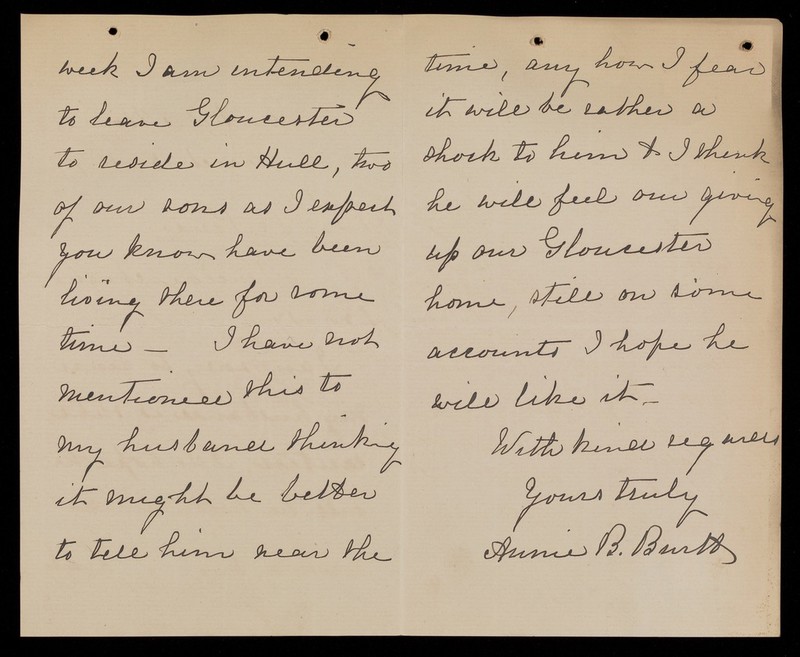 week I am intending
to leave Gloucester
to reside in Hull, two
of our sons as I expect
you know have been
living there for some
time — I have not
mentioned this to
my husband thinking
it might be better
to tell him near the
time, any how I fear
it will be rather a
shock to him & I think
he will feel our giving
up our Gloucester
home, still on some
accounts I hope he
will like it —
With kind regards
Yours truly
Annie B.